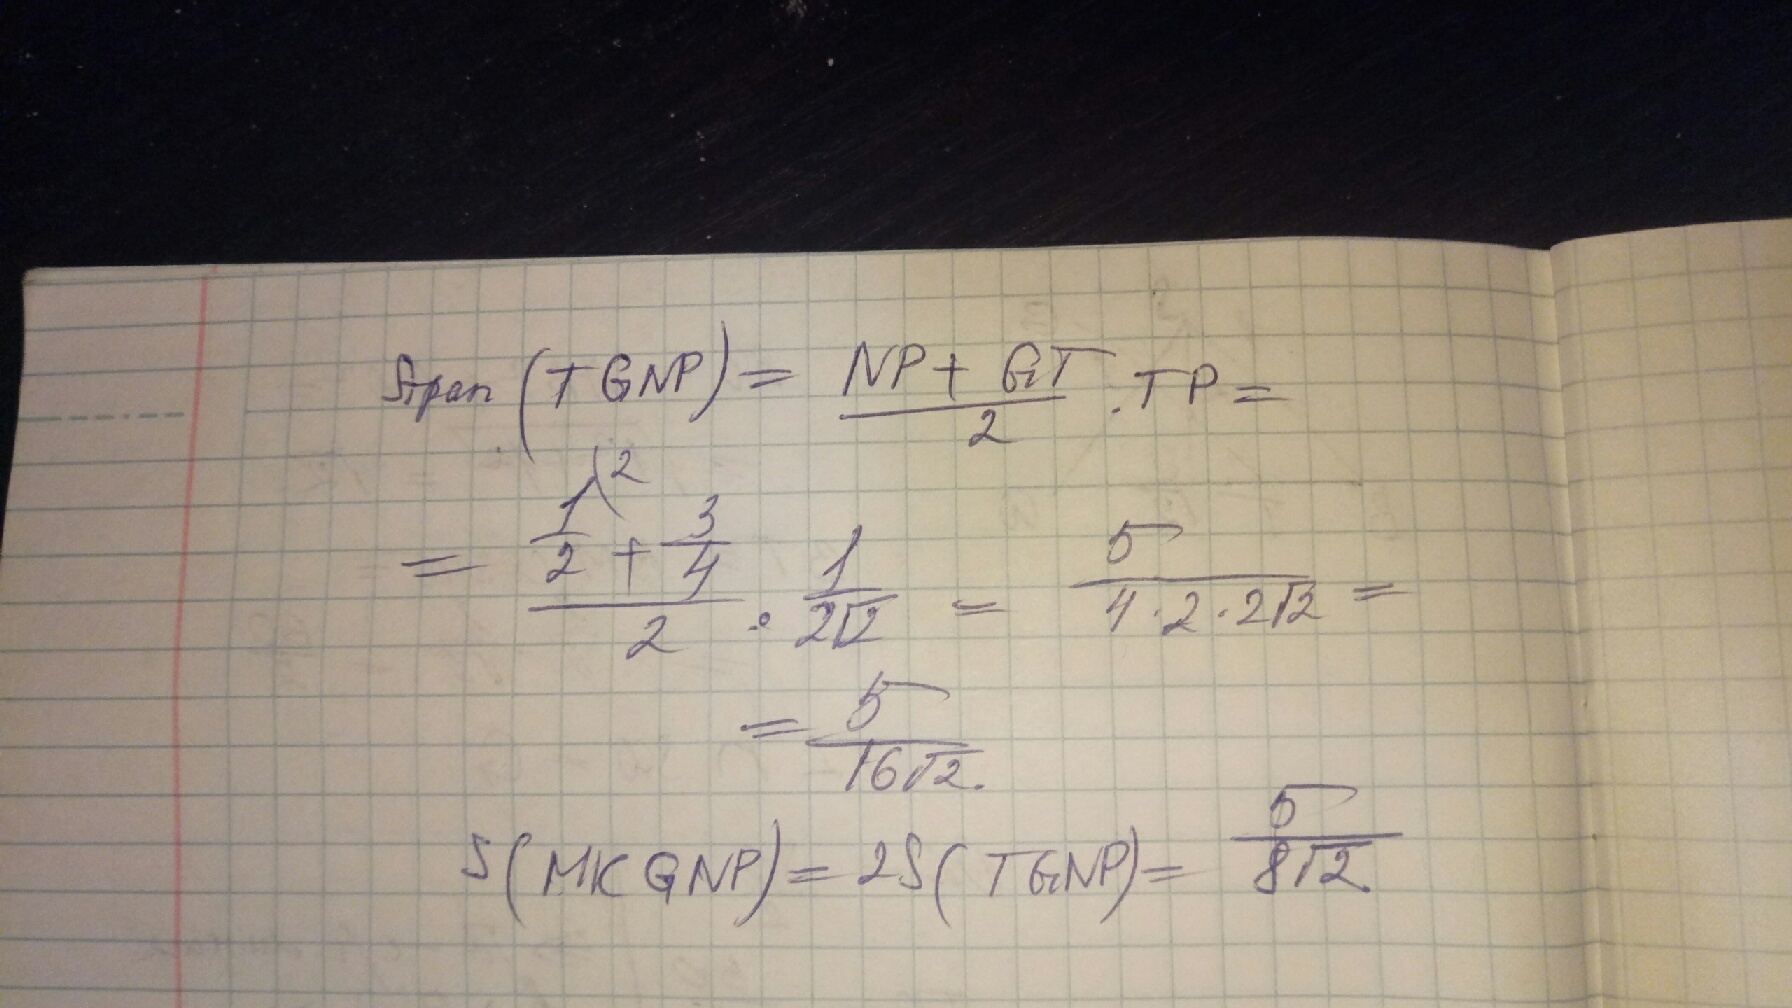 Sтрап (TGNP) = (NP + GT)/2 · TP =
= (1/2⁽² + 3/4)/2 · 1/(2√2) = 5/(4·2·2√2) =
= 5/(16√2).
S(MKGNP) = 2S(TGNP) = 5/(8√2)